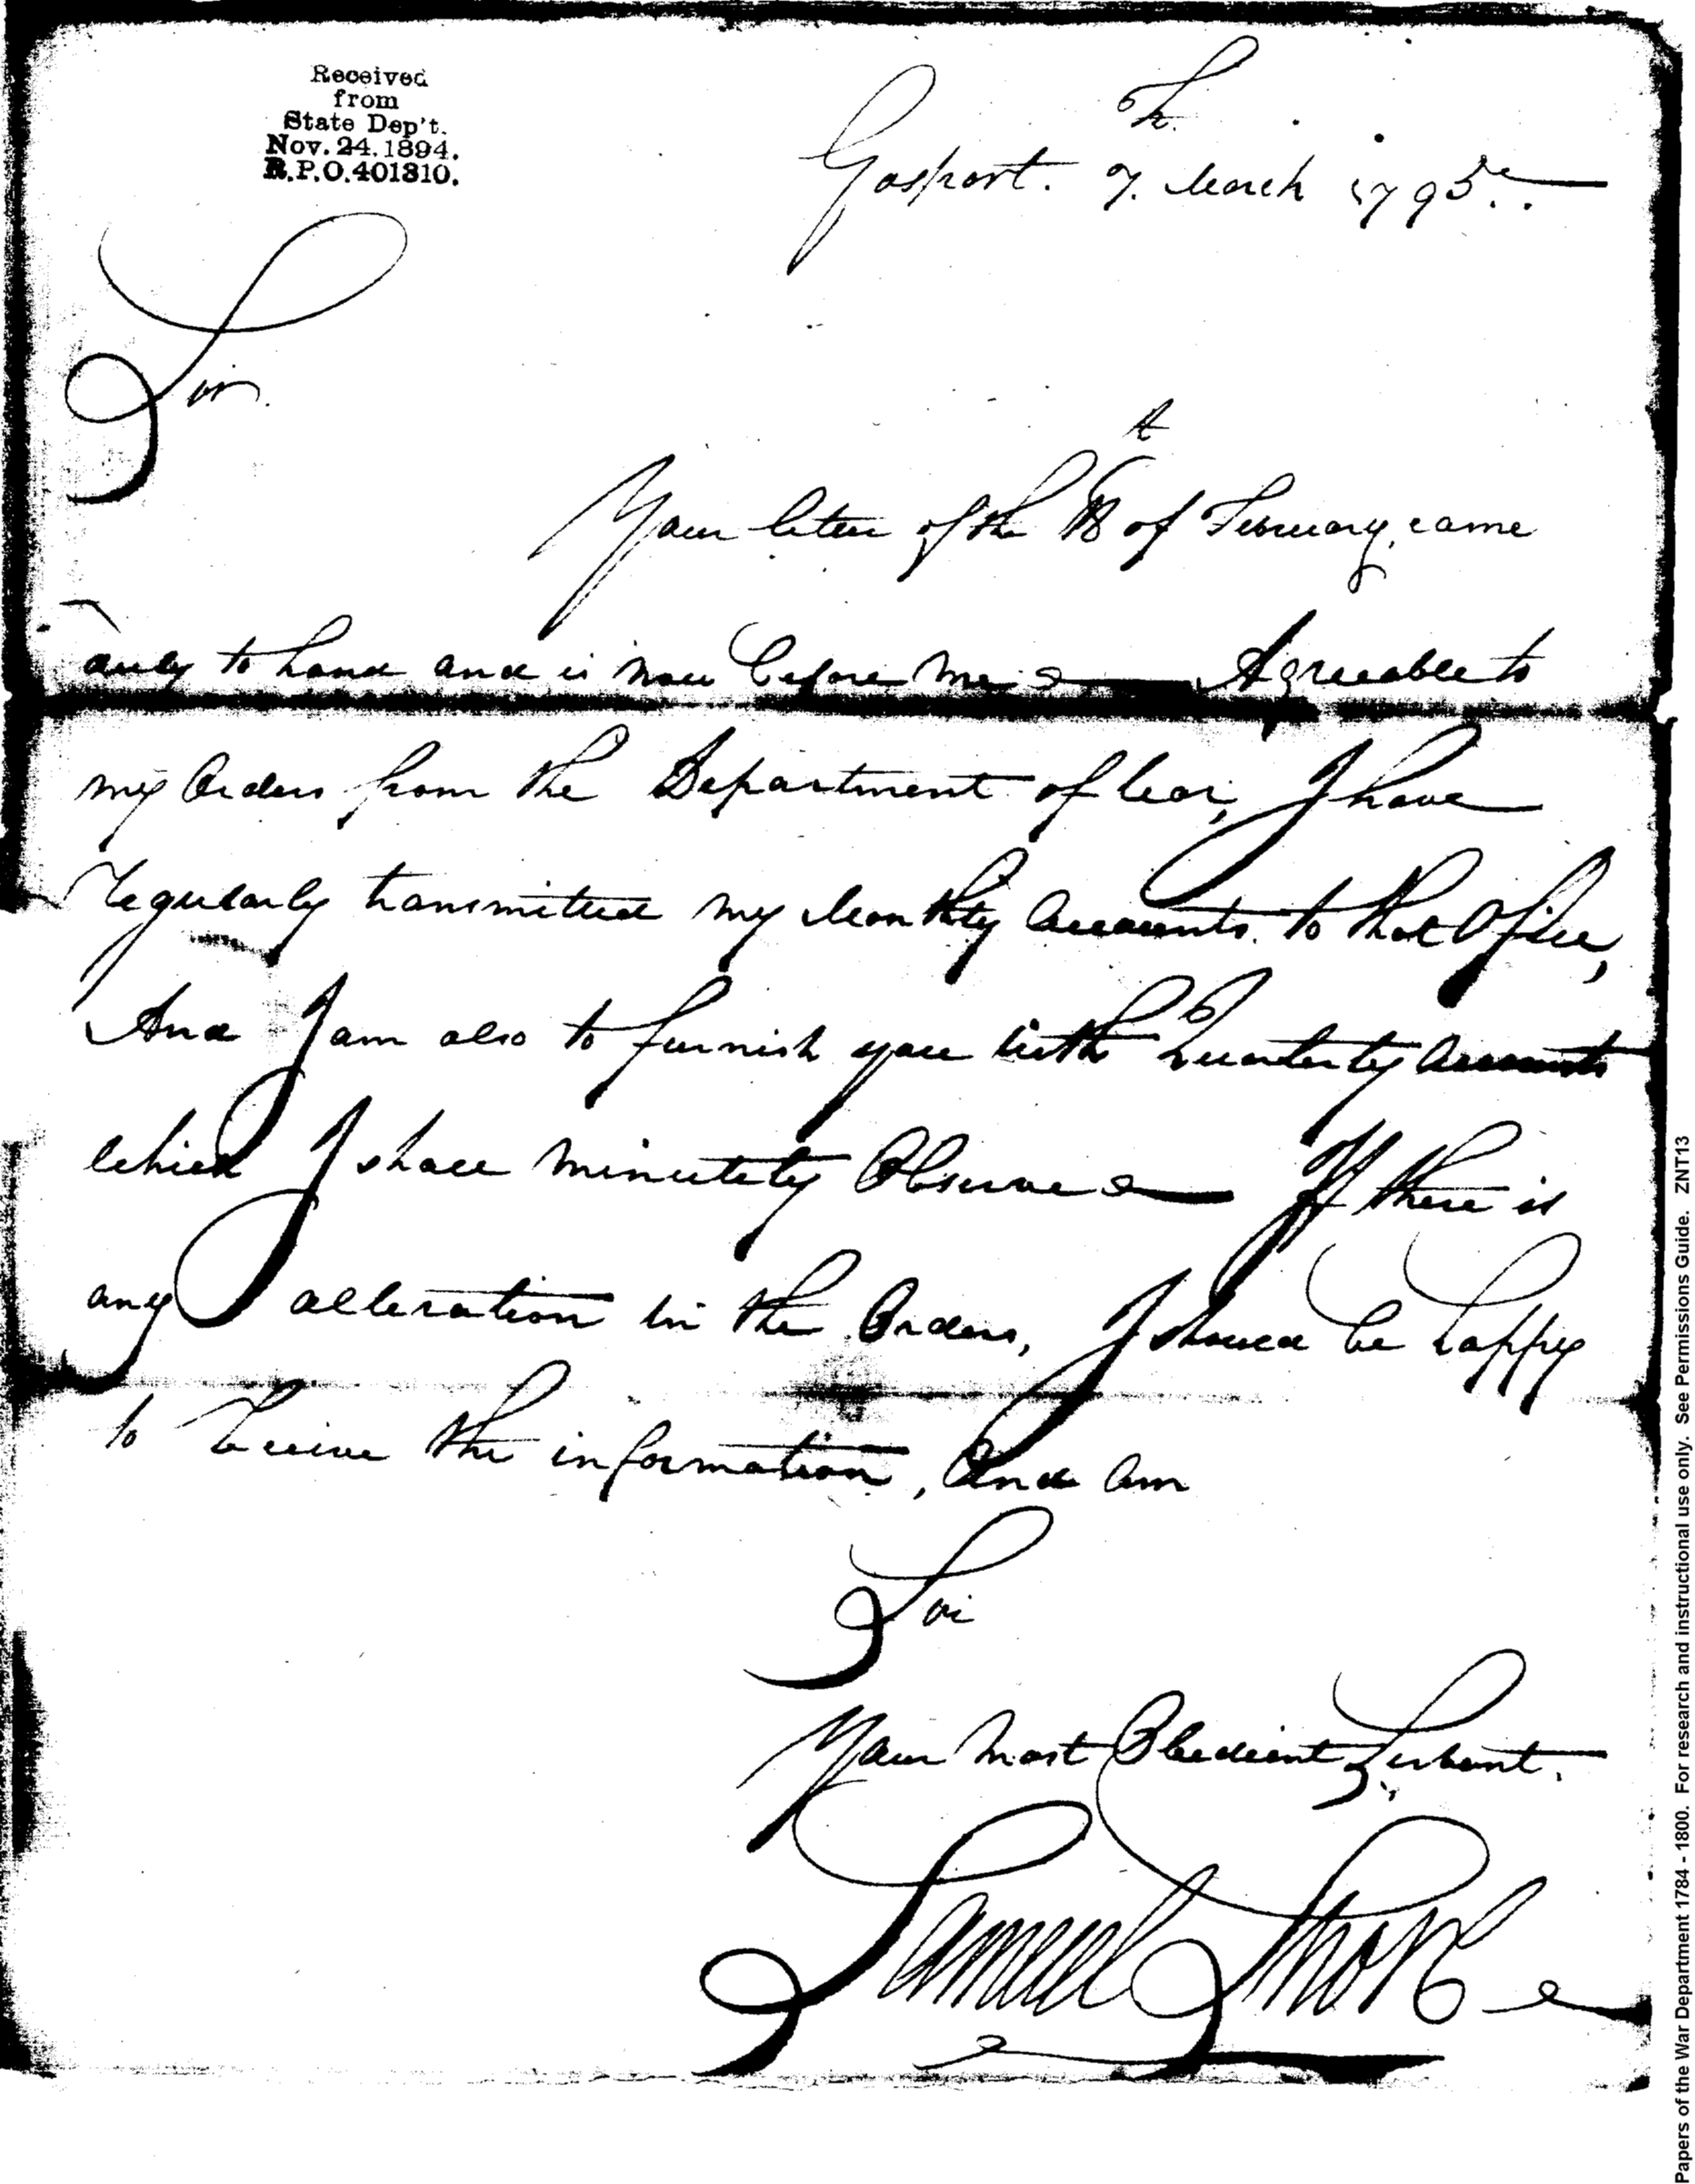 Received
from
State Dep't.
Nov. 24. 1894.
R.P.O. 401310.
Gosport. 7.th March 1795.
Sir
Your letter of the of February, came
duly to hand and is now before me Agreeable to
my Orders from the Department of War, I have
regularly transmitted my Monthly Accounts. to that Office,
And I am also to furnish you with Quarterly Accounts
which I shall minutely Observe If there is
any alteration in the Orders, I should be happy
to Receive the information, And am
Sir
Your most Obedient Servant.
Samuel
Papers of the War Department 1784 - 1800. For research and instructional use only. See Permissions Guide. ZNT13